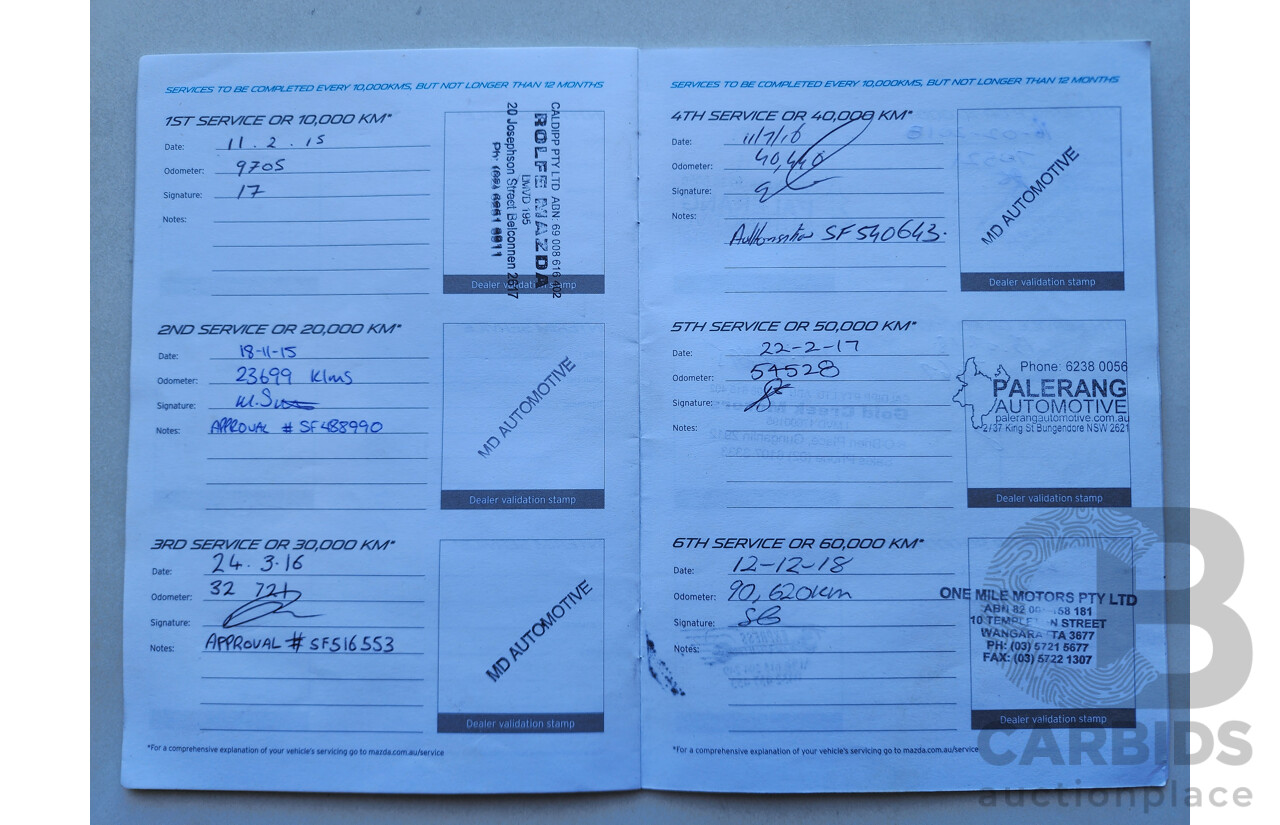 SERVICES TO BE COMPLETED EVERY 10,000KMS, BUT NOT LONGER THAN 12 MONTHS
1ST SERVICE OR 10,000 KM*
Date: 11.2.15
Odometer: 9705
Signature: 17
Notes:
CALDIPP PTY LTD ABN: 69 008 616 402
ROLFE MAZDA
LMVD 195
20 Josephson Street Belconnen 2617
Dealer validation stamp
2ND SERVICE OR 20,000 KM*
Date: 18-11-15
Odometer: 23699 Klms
Signature:
Notes: APPROVAL # SF488990
MD AUTOMOTIVE
Dealer validation stamp
3RD SERVICE OR 30,000 KM*
Date: 24.3.16
Odometer: 32
Signature:
Notes: APPROVAL # SF516553
MD AUTOMOTIVE
Dealer validation stamp
*For a comprehensive explanation of your vehicle's servicing go to mazda.com.au/service
SERVICES TO BE COMPLETED EVERY 10,000KMS, BUT NOT LONGER THAN 12 MONTHS
4TH SERVICE OR 40,000 KM*
Date: 11/7/16
Odometer: 40,440
Signature:
Notes:
SF540643.
MD AUTOMOTIVE
Dealer validation stamp
5TH SERVICE OR 50,000 KM*
Date: 22-2-17
Odometer: 54528
Signature:
Notes:
Phone: 6238 0056
PALERANG
AUTOMOTIVE
palerangautomotive.com.au
2/37 King St Bungendore NSW 2621
Dealer validation stamp
6TH SERVICE OR 60,000 KM*
Date: 12-12-18
Odometer: 90,620km
Signature: SB
Notes:
ONE MILE MOTORS PTY LTD
ABN 82 158 181
10 STREET
3677
PH: (03) 5721 5677
FAX: (03) 5722 1307
Dealer validation stamp
*For a comprehensive explanation of your vehicle's servicing go to mazda.com.au/service
CARBIDS
auctionplace